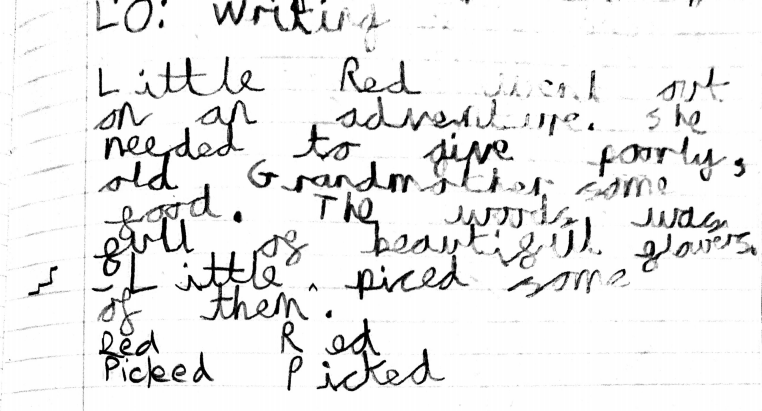 LO: Writing
Little Red went out
on an adventure. She
needed to give poorly,
old Grandmother some
food. The woods was
full of beautifull flowers.
Little ^ piced some
of them.
Red Red
Picked Picted